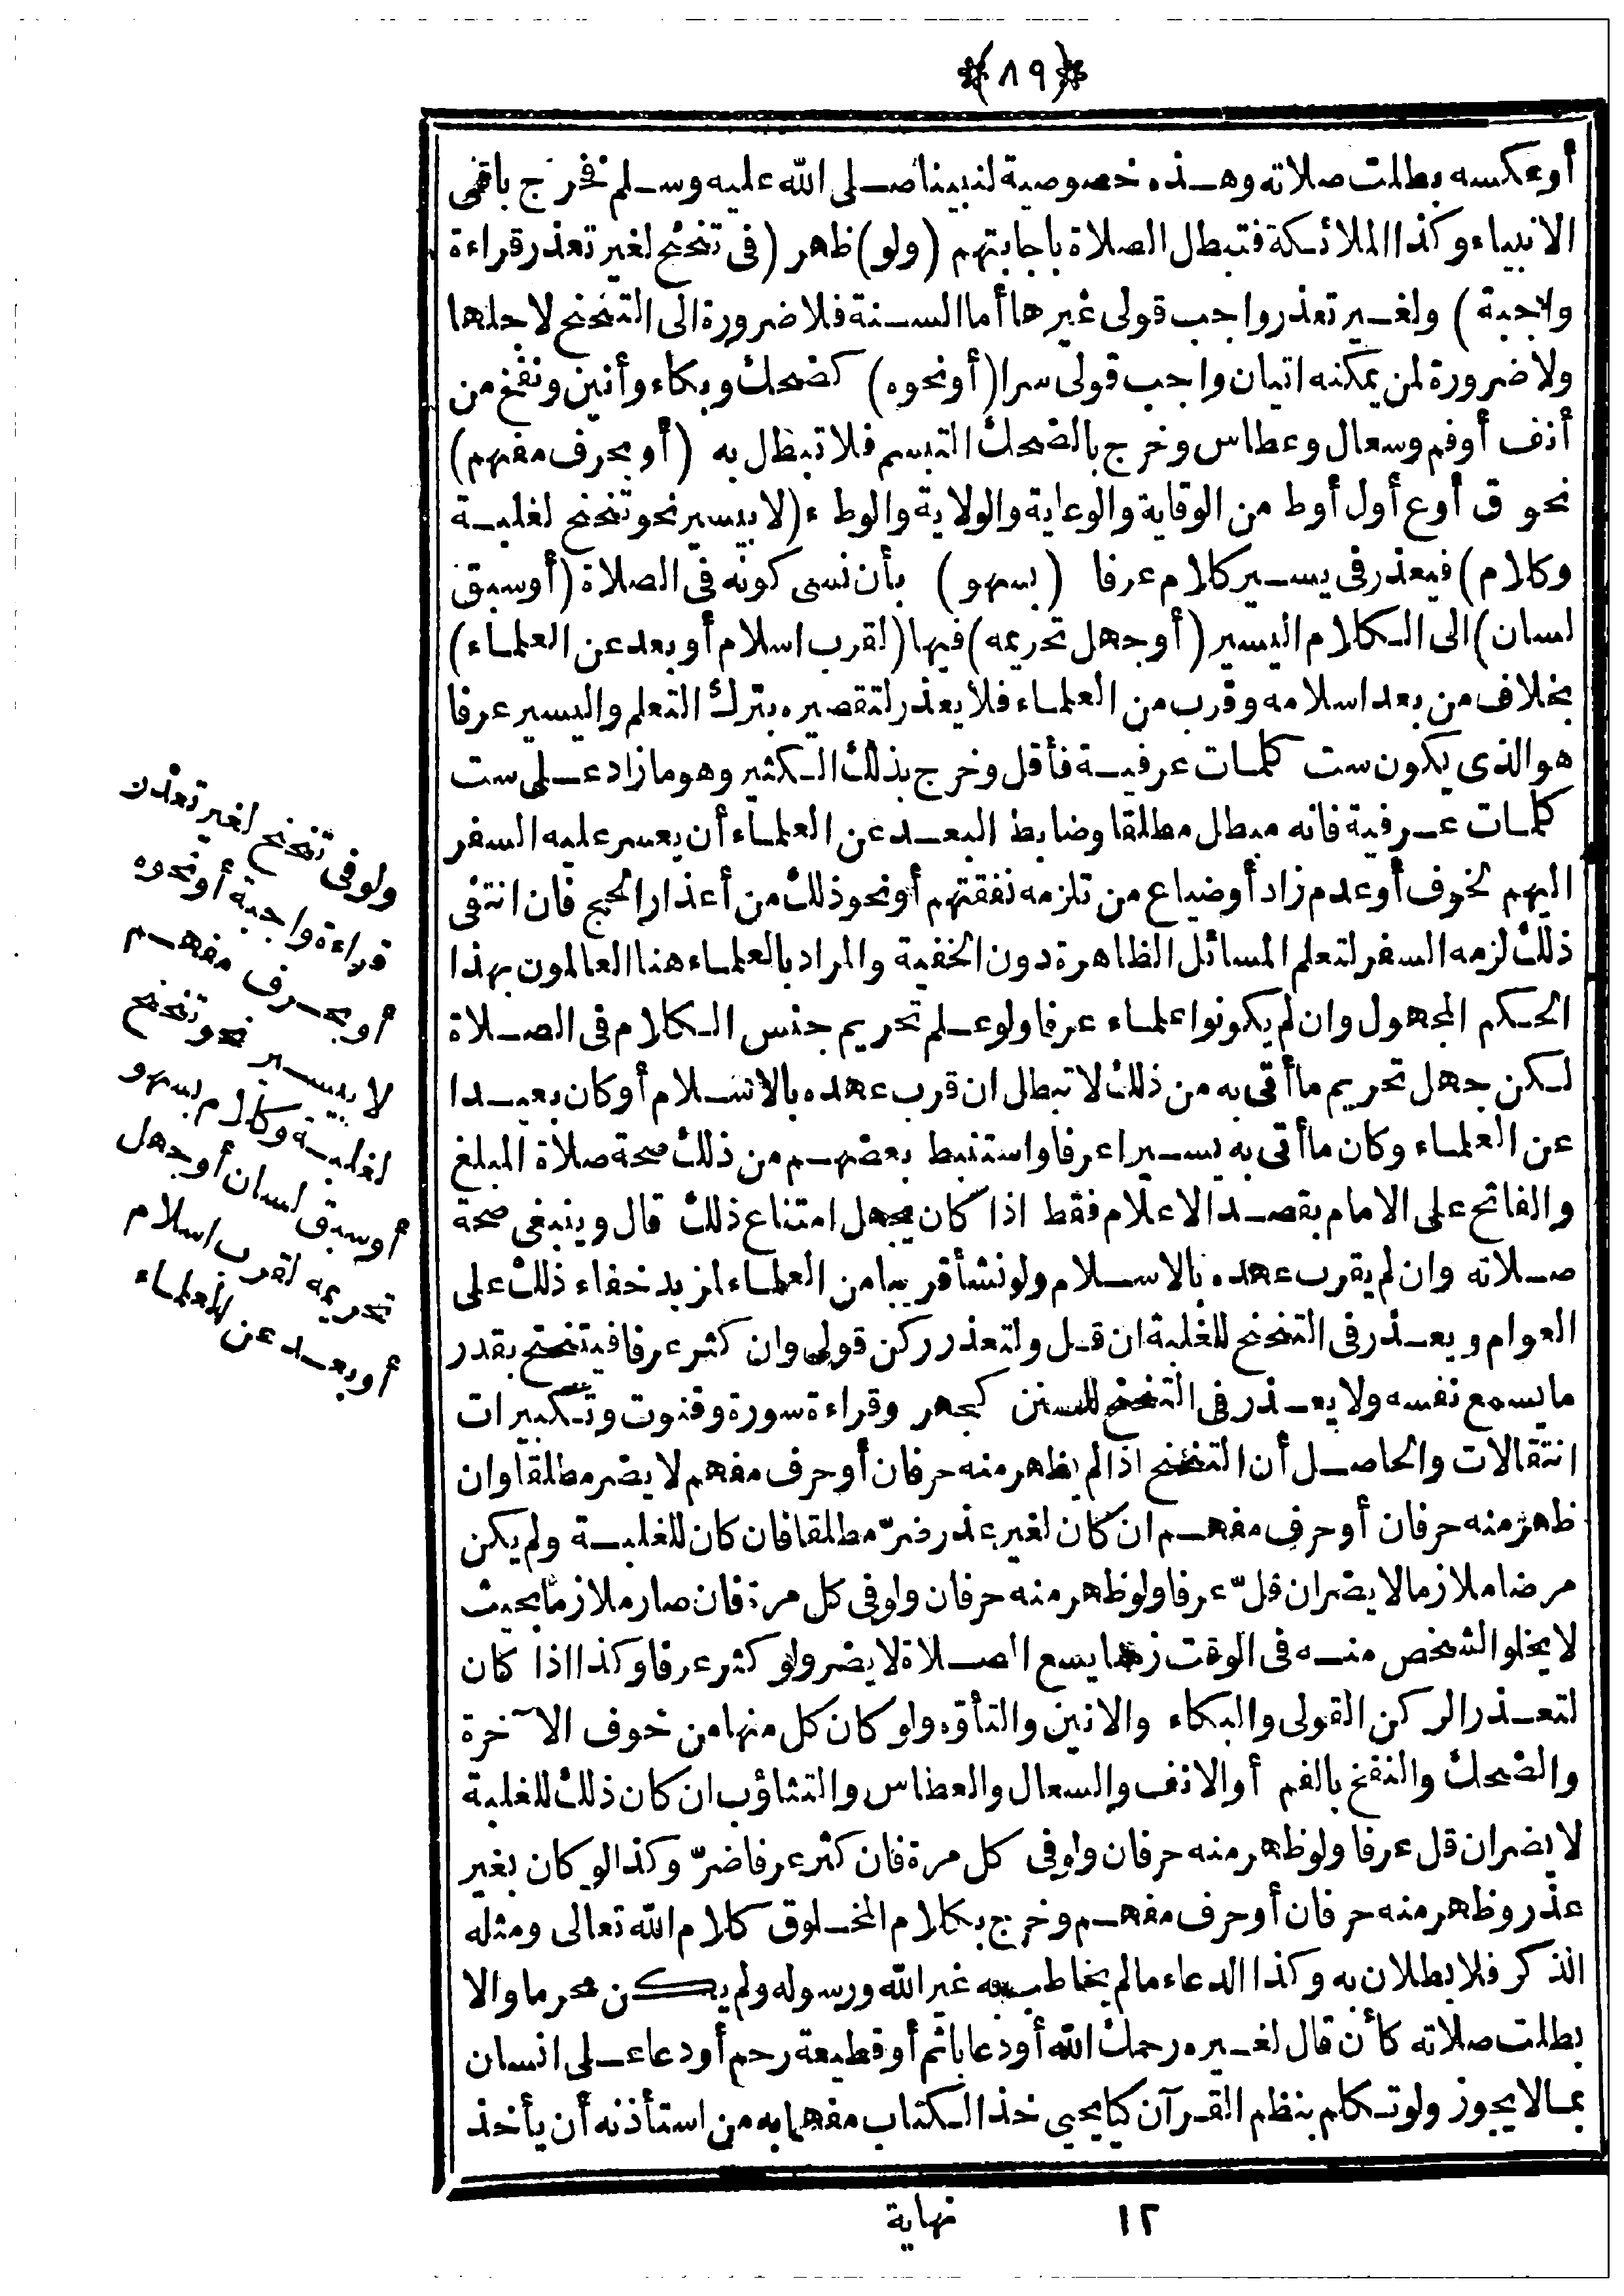 ﴿٨٩﴾
أو عكسه بطلت صلاته وهذه خصوصية لنبينا صلى الله عليه وسلم فخرج باقى
الانبياء وكذا الملائكة فتبطل الصلاة باجابتهم (ولو) ظهر (فى تنحنح لغير تعذر قراءة
واجبة) ولغير تعذر واجب قولى غيرها أما السنة فلا ضرورة الى التنحنح لاجلها
ولا ضرورة لمن يمكنه اتيان واجب قولى سرا (أو نحوه) كضحك وبكاء وأنين ونفخ من
أنف أو فم وسعال وعطاس وخرج بالضحك التبسم فلا تبطل به (أو بحرف مفهم)
نحو ق أو ع أو ل أو ط من الوقاية والوعاية والولاية والوطء (لا بيسير نحو تنحنح لغلبة
وكلام) فيعذر فى يسير كلام عرفا (بسهو) بأن نسى كونه فى الصلاة (أو سبق
لسان) الى الكلام اليسير (أو جهل تحريمه) فيها (لقرب اسلام أو بعد عن العلماء)
بخلاف من بعد اسلامه وقرب من العلماء فلا يعذر لتقصيره بترك التعلم واليسير عرفا
هو الذى يكون ست كلمات عرفية فأقل وخرج بذلك الكثير وهو ما زاد على ست
كلمات عرفية فانه مبطل مطلقا وضابط البعد عن العلماء أن يعسر عليه السفر
اليهم لخوف أو عدم زاد أو ضياع من تلزمه نفقتهم أو نحو ذلك من أعذار الحج فان انتفى
ذلك لزمه السفر لتعلم المسائل الظاهرة دون الخفية والمراد بالعلماء هنا العالمون بهذا
الحكم المجهول وان لم يكونوا علماء عرفا ولو علم تحريم جنس الكلام فى الصلاة
لكن جهل تحريم ما أتى به من ذلك لا تبطل ان قرب عهده بالاسلام أو كان بعيدا
عن العلماء وكان ما أتى به يسيرا عرفا واستنبط بعضهم من ذلك صحة صلاة المبلغ
والفاتح على الامام بقصد الاعلام فقط اذا كان يجهل امتناع ذلك قال وينبغى صحة
صلاته وان لم يقرب عهده بالاسلام ولو نشأ قريبا من العلماء لمزيد خفاء ذلك على
العوام ويعذر فى التنحنح للغلبة ان قل ولتعذر ركن قولى وان كثر عرفا فيتنحنح بقدر
ما يسمع نفسه ولا يعذر فى التنحنح للسنن كجهر وقراءة سورة وقنوت وتكبيرات
انتقالات والحاصل أن التنحنح اذا لم يظهر منه حرفان أو حرف مفهم لا يضر مطلقا وان
ظهر منه حرفان أو حرف مفهم ان كان لغير عذر ضرّ مطلقا فان كان للغلبة ولم يكن
مرضا ملازما لا يضر ان قلّ عرفا ولو ظهر منه حرفان ولو فى كل مرة فان صار ملازما بحيث
لا يخلو الشخص منه فى الوقت زمنا يسع الصلاة لا يضر ولو كثر عرفا وكذا اذا كان
لتعذر الركن القولى والبكاء والانين والتأوّه ولو كان كل منها من خوف الآخرة
والضحك والنفخ بالفم أو الانف والسعال والعطاس والتثاؤب ان كان ذلك للغلبة
لا يضر ان قل عرفا ولو ظهر منه حرفان ولو فى كل مرة فان كثر عرفا ضرّ وكذا لو كان بغير
عذر وظهر منه حرفان أو حرف مفهم وخرج بكلام المخلوق كلام الله تعالى ومثله
الذكر فلا بطلان به وكذا الدعاء ما لم يخاطب به غير الله ورسوله ولم يكن محرما والا
بطلت صلاته كأن قال لغيره رحمك الله أو دعا باثم أو قطيعة رحم أو دعا على انسان
بما لا يجوز ولو تكلم بنظم القرآن كيا يحيى خذ الكتاب مفهما به من استأذنه أن يأخذ
ولو فى تنحنح لغير تعذر
قراءة واجبة أو نحوه
أو بحرف مفهم
لا بيسير نحو تنحنح
لغلبة وكلام بسهو
أو سبق لسان أو جهل
تحريمه لقرب اسلام
أو بعد عن العلماء
١٢ نهاية